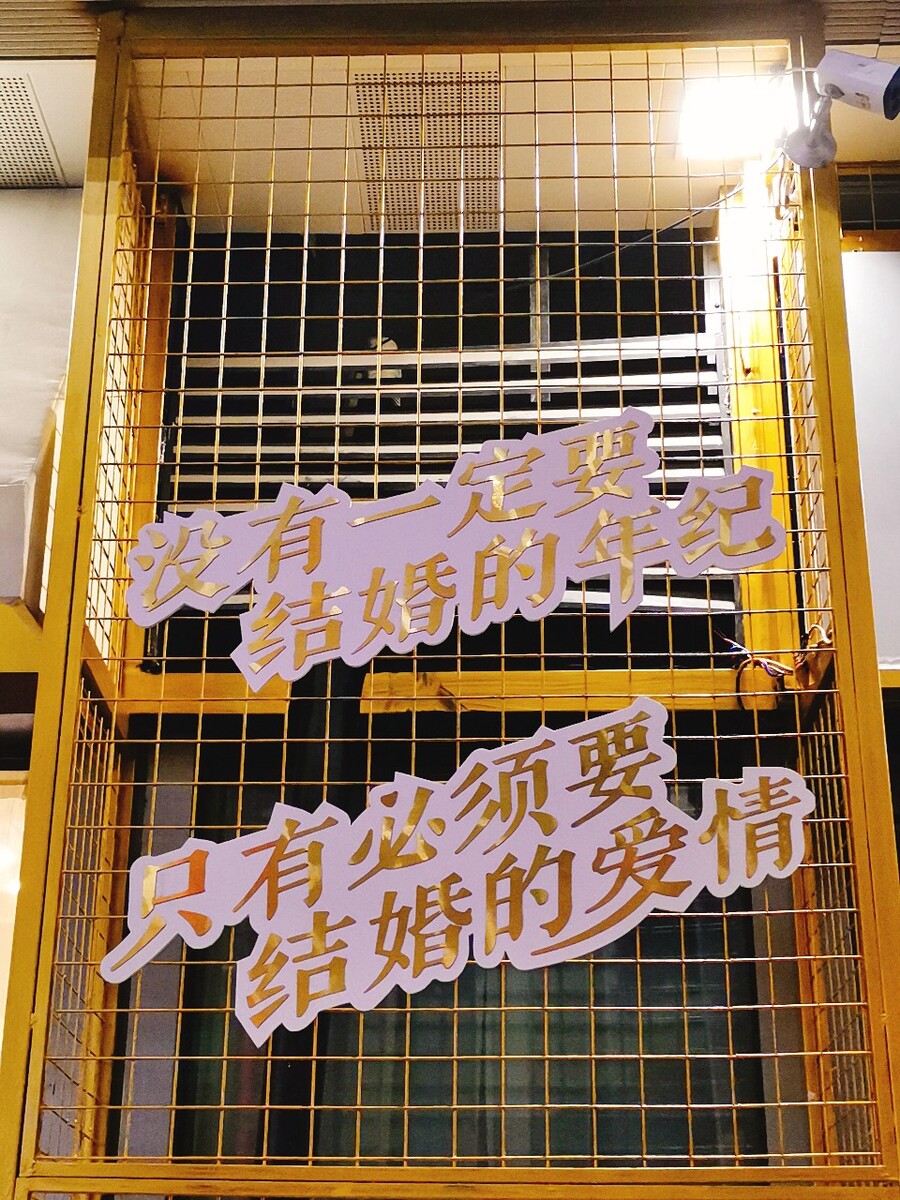 没有一定要
结婚的年纪
只有必须要
结婚的爱情